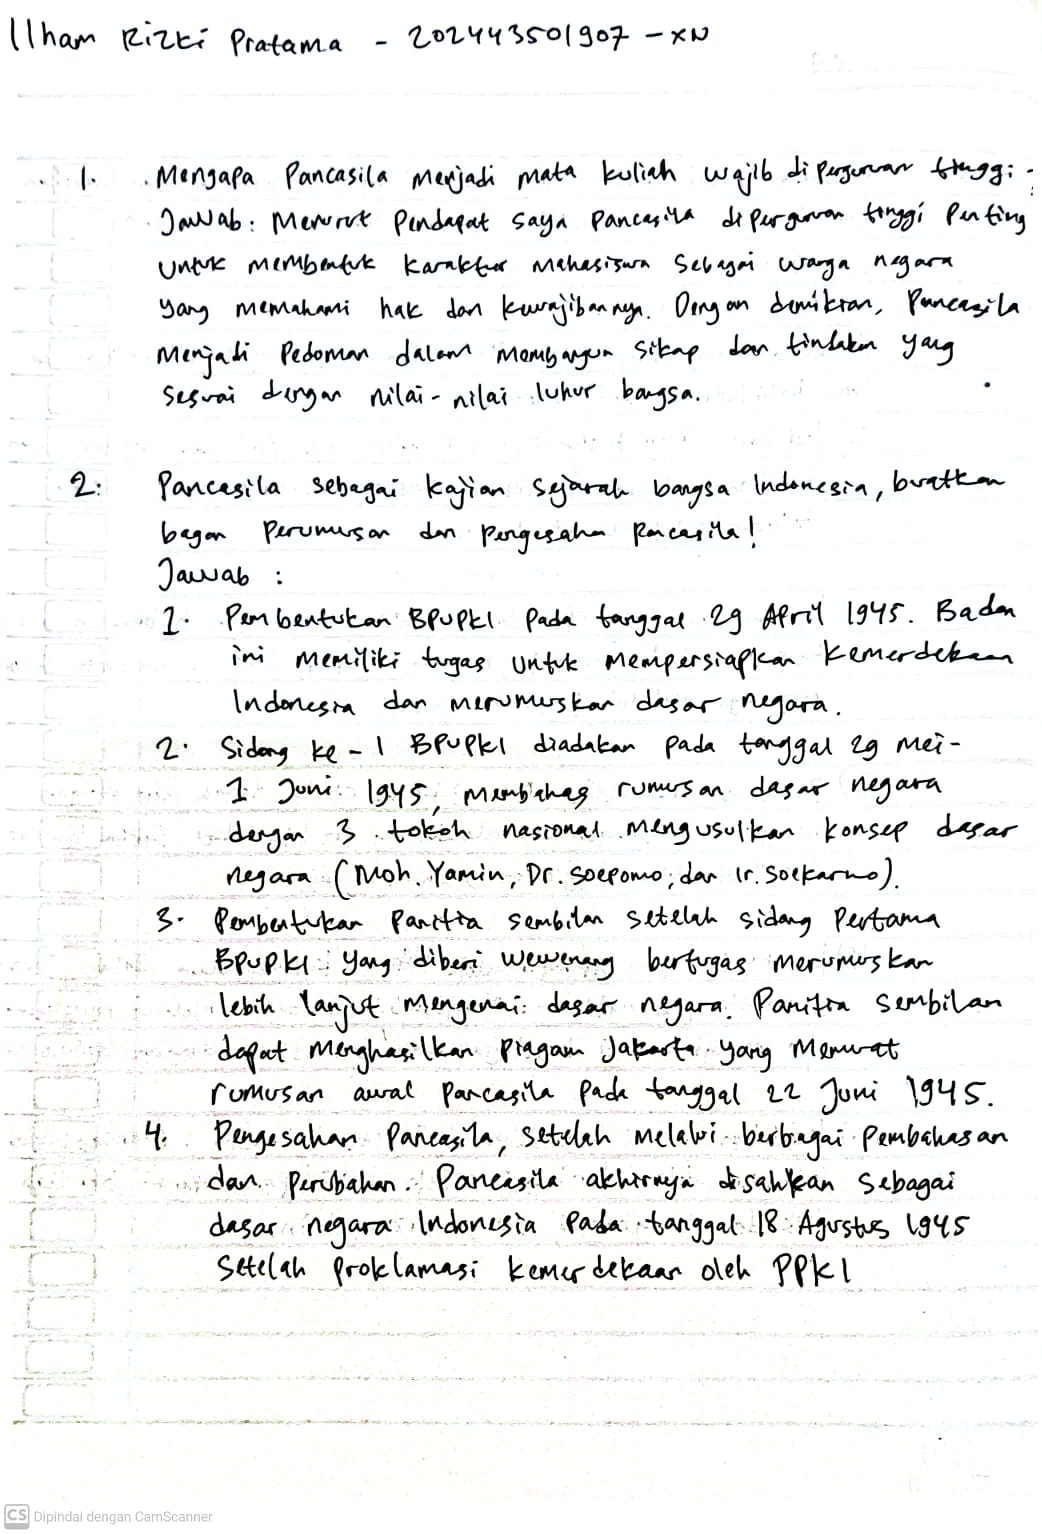 Ilham Rizki Pratama - 202443501907 - XN
1. Mengapa Pancasila menjadi mata kuliah wajib di perguruan tinggi :
Jawab : Menurut Pendapat saya Pancasila di perguruan tinggi Penting
untuk membentuk karakter mahasiswa sebagai warga negara
yang memahami hak dan kewajibannya. Dengan demikian, Pancasila
menjadi Pedoman dalam membangun sikap dan tindakan yang
sesuai dengan nilai-nilai luhur bangsa.
2. Pancasila sebagai kajian sejarah bangsa Indonesia, buatkan
bagan Perumusan dan Pengesahan Pancasila!
Jawab :
1. Pembentukan BPUPKI Pada tanggal 29 April 1945. Badan
ini memiliki tugas untuk mempersiapkan kemerdekaan
Indonesia dan merumuskan dasar negara.
2. Sidang ke-1 BPUPKI diadakan pada tanggal 29 mei-
1 Juni 1945, membahas rumusan dasar negara
dengan 3 tokoh nasional mengusulkan konsep dasar
negara (Moh. Yamin, Dr. Soepomo, dan Ir. Soekarno).
3. Pembentukan Panitia sembilan setelah sidang Pertama
BPUPKI yang diberi wewenang bertugas merumuskan
lebih lanjut mengenai dasar negara. Panitia Sembilan
dapat menghasilkan Piagam Jakarta yang memuat
rumusan awal Pancasila pada tanggal 22 Juni 1945.
4. Pengesahan Pancasila, setelah melalui berbagai Pembahasan
dan Perubahan. Pancasila akhirnya disahkan sebagai
dasar negara Indonesia Pada tanggal 18 Agustus 1945
setelah Proklamasi kemerdekaan oleh PPKI
CS Dipindai dengan CamScanner